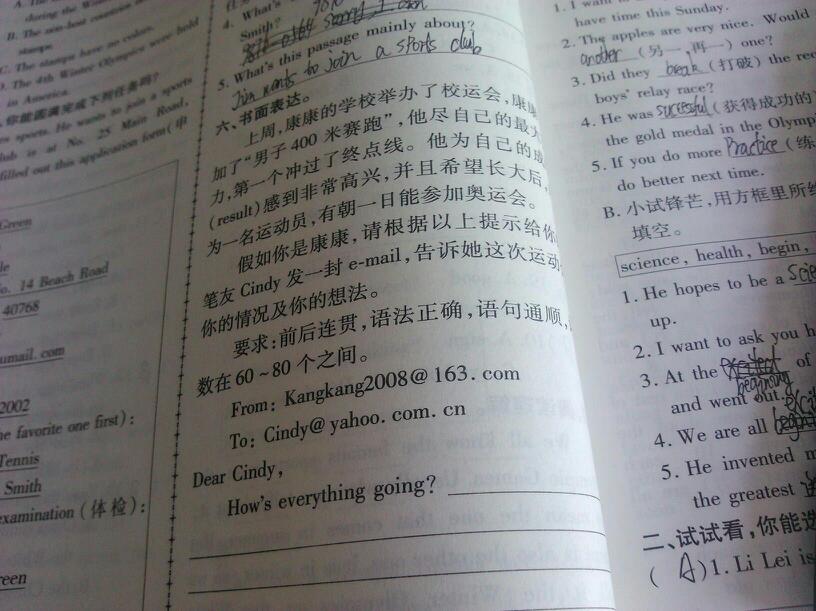 during the Winter
B. The non-host countries
stamps.
C. The stamps have no colors.
D. The 4th Winter Olympics were held
in America.
你能圆满完成下列任务吗?
sports. He wants to join a sports
club is at No. 25 Main Road,
filled out this application form(申
Green
No. 14 Beach Road
40768
2002
favorite one first):
Tennis
Smith
examination (体检):
4. What's
Smith?
5. What's this passage mainly about?
Jim wants to join a sports club
六、书面表达。
上周,康康的学校举办了校运会,康康
加了“男子400米赛跑”,他尽自己的最大
力,第一个冲过了终点线。他为自己的成
(result)感到非常高兴,并且希望长大后,
为一名运动员,有朝一日能参加奥运会。
假如你是康康,请根据以上提示给你
笔友 Cindy 发一封 e-mail,告诉她这次运动
你的情况及你的想法。
要求:前后连贯,语法正确,语句通顺,
数在 60~80 个之间。
From: Kangkang2008@163.com
To: Cindy@yahoo.com.cn
Dear Cindy,
How's everything going?
1. I want
have time this Sunday.
2. The apples are very nice. Would
another (另一,再一) one?
3. Did they break (打破) the
boys' relay race?
4. He was sucessful (获得成功的)
the gold medal in the
5. If you do more Practice (练
do better next time.
B. 小试锋芒,用方框里所给
填空。
science, health, begin,
1. He hopes to be a
up.
2. I want to ask you
3. At the beginning of
and went out.
4. We are all
5. He invented
the greatest
二、试试看,你能选
( A )1. Li Lei is